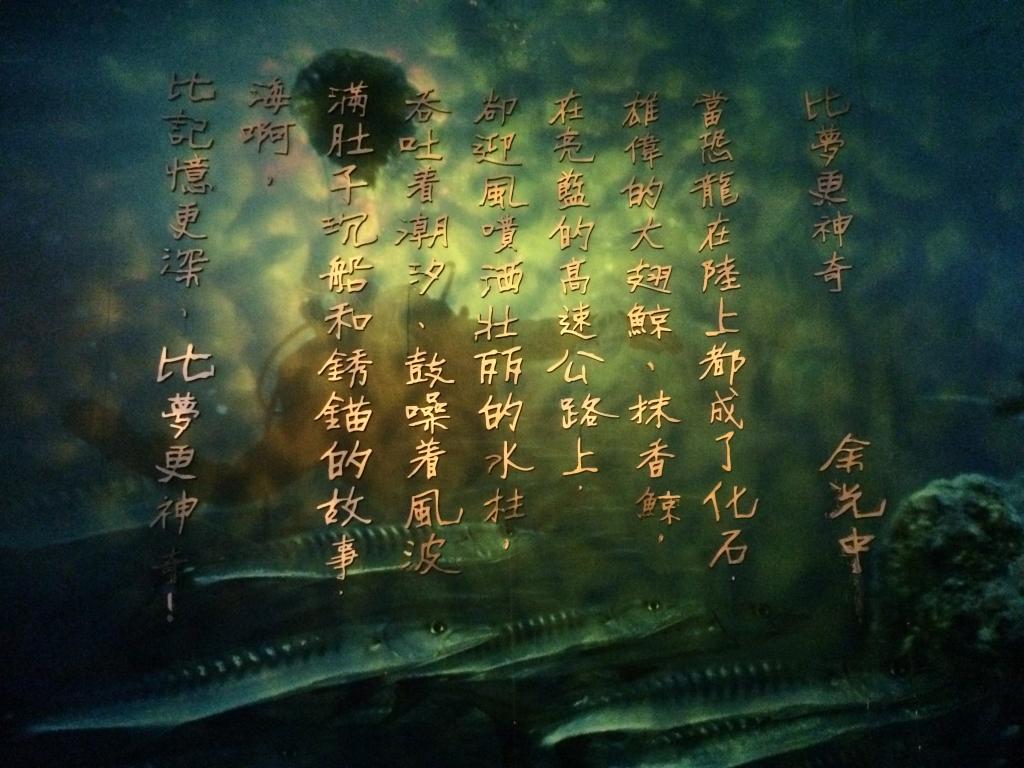 比夢更神奇 余光中
當恐龍在陸上都成了化石.
雄偉的大翅鯨、抹香鯨,
在亮藍的高速公路上.
卻迎風噴洒壯丽的水柱,
吞吐着潮汐、鼓噪着風波
滿肚子沉船和銹錨的故事.
海啊,
比記憶更深、比夢更神奇!